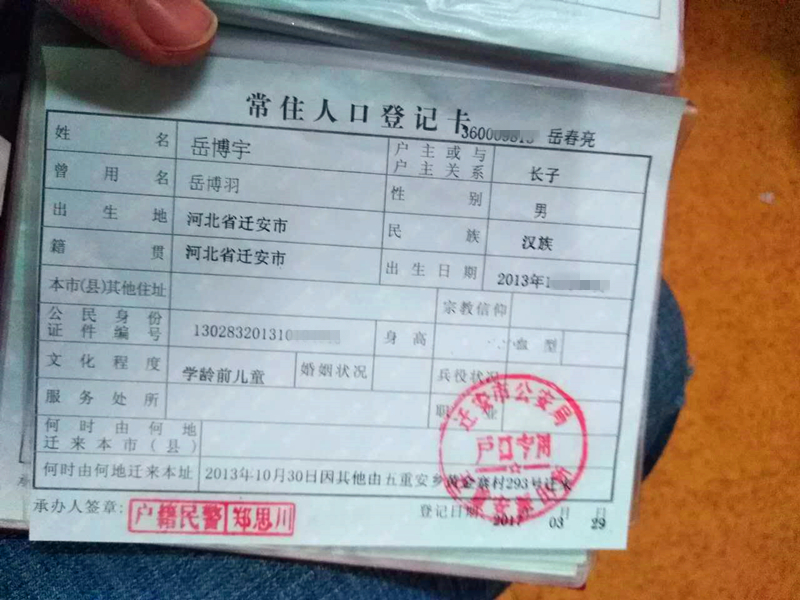 常住人口登记卡
360009813 岳春亮
姓名 岳博宇 户主或与户主关系 长子
曾用名 岳博羽 性别 男
出生地 河北省迁安市 民族 汉族
籍贯 河北省迁安市 出生日期 2013年1
本市(县)其他住址 宗教信仰
公民身份证件编号 130283201310 身高 血型
文化程度 学龄前儿童 婚姻状况 兵役状况
服务处所 职业
何时由何地迁来本市(县)
何时由何地迁来本址 2013年10月30日因其他由五重安乡黄金寨村293号迁来
承办人签章: 户籍民警 郑思川 登记日期: 2017 年 03 月 29 日
迁安市公安局
户口专用